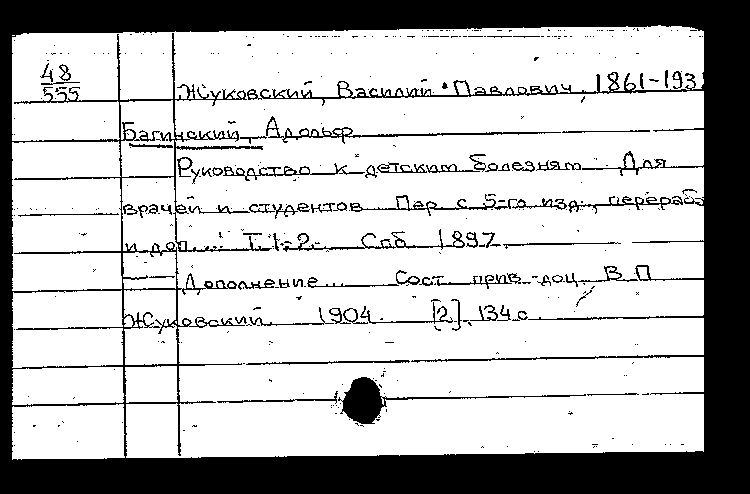 48
555
Жуковский, Василий Павлович, 1861-193
Багинский, Адольф
Руководство к детским болезням. Для
врачей и студентов. Пер. с 5-го изд., перераб.
и доп. ... Т. 1-2. Спб. 1897.
Дополнение... Сост. прив.-доц. В. П.
Жуковский. 1904. [2], 134 с.